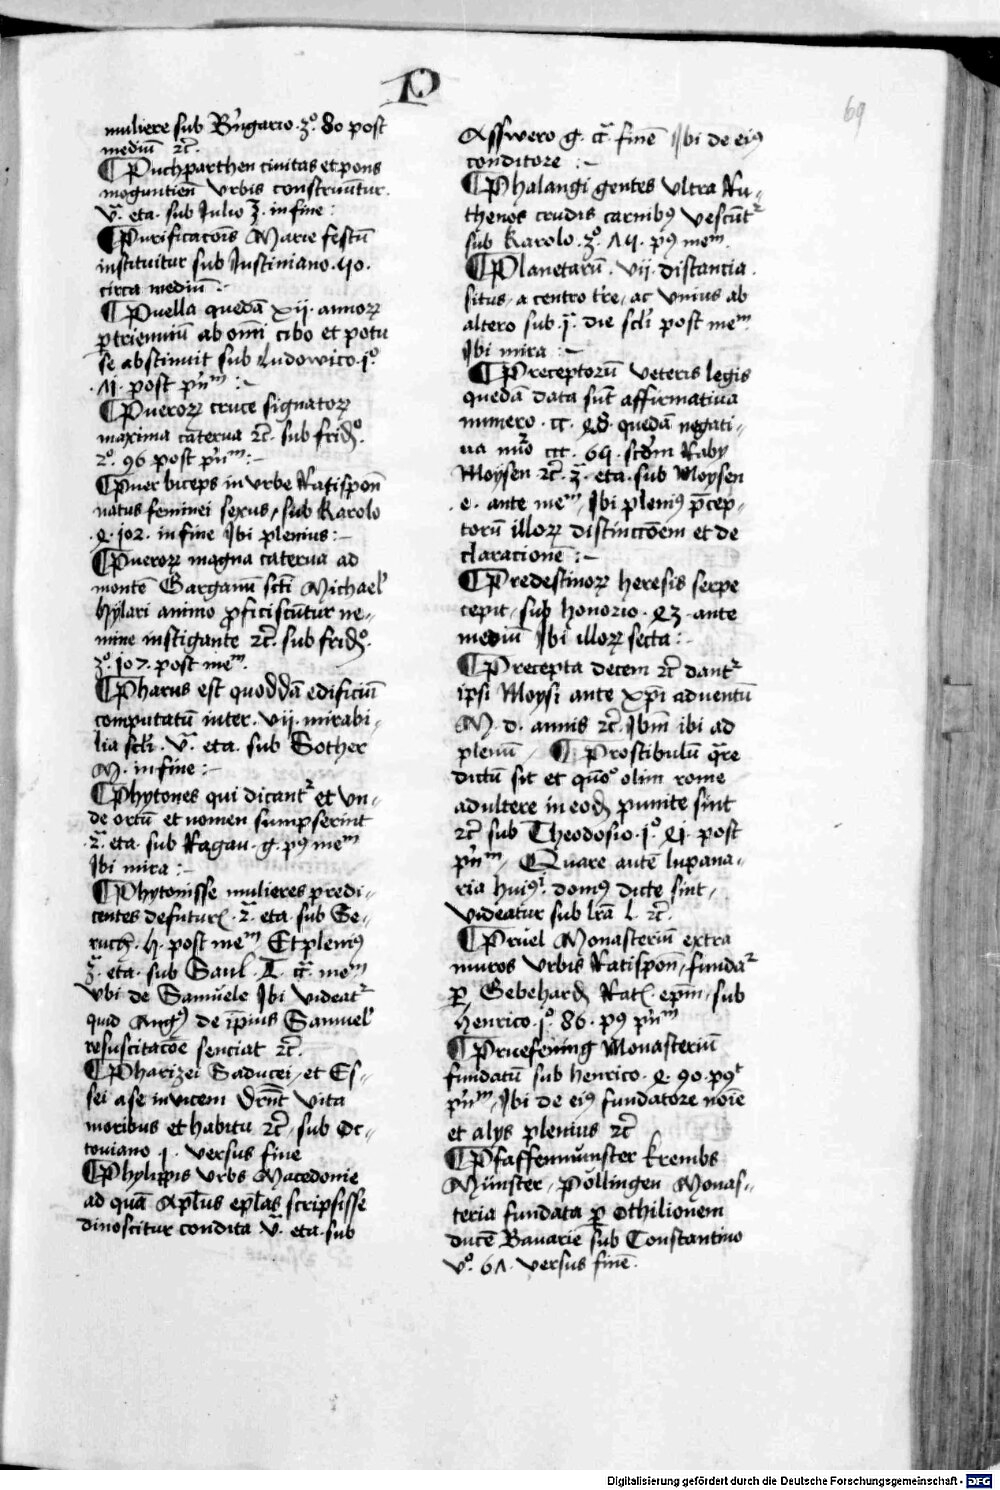 P
69
muliere sub Bũgario .3º. 80 post
mediũ ⁊c̃.
¶ Puchparthen civitas et pons
moguntieñ urbis construũtur.
v̄. eta. sub Julio 3. in fine :
¶ Purificacõis Marie festũ
instituitur sub Justiniano. 40.
circa mediũ :~
¶ Puella quedã xii. annoꝝ
ꝑ trienniũ ab omi cibo et potu
se abstinuit sub Ludowico .1º
. 11. post pñᵐ :~
¶ Pueroꝝ cruce signatoꝝ
maxima caterva ⁊c̃. sub frid̃.
2º. 96 post pñᵐ :~
¶ Puer biceps in urbe Ratispoñ
natus feminei sexus, sub Karolo
.4. 102. in fine Ibi plenius :~
¶ Pueroꝝ magna caterva ad
montẽ Garganũ scti Michael'
hylari animo ꝓficiscũtur ne-
mine instigante ⁊c̃. sub frid̃º.
3º. 107. post meᵐ.
¶ Pharus est quoddã edificiũ
computatũ inter .vii. mirabi-
lia scł'i. v̄. eta. sub Sother
M. in fine :~
¶ Phytones qui dicantᷣ et un-
de ortũ et nomen sumpserint
.2̄. eta. sub Ragau. g. pꝰ meᵐ
Ibi mira :~
¶ Phytonisse mulieres predi-
centes de futurꝭ .2̄. eta. sub Se-
ruch. h. post meᵐ Et pleniꝰ
3̄. eta. sub Saul. meᵐ
ubi de Samuele Ibi videatᷣ
quid Augꝰ de ip̃ius Samuel'
resuscitacõe senciat ⁊c̃.
¶ Pharizei Saducei, et Es-
sei a se invicem dr̃nt vita
moribus et habitu ⁊c̃, sub Oc-
toviano 1. versus fine
¶ Phylippis urbs Macedonie
ad quã Apl̃us epl̃as scripsisse
dinoscitur condita v̄. eta. sub
Asswero g. finẽ Ibi de eiꝰ
conditore :~
¶ Phalangi gentes ultra Ru-
thenos crudis carnibꝰ vescũtᷣ
sub Karolo .3º. 14. pꝰ meᵐ.
¶ Planetarũ .vii. distancia
situs, a centro tr̃e, ac unius ab
altero sub die scł'i post meᵐ
Ibi mira :~
¶ Preceptorũ veteris legis
quedã data sũt affirmativa
numero .cc. 48. quedã negati-
ua nũo ccc. 64. scd̃m Raby
Moysen ⁊c̃. 3̄. eta. sub Moysen
.e. ante meᵐ Ibi pleniꝰ p̃cep-
torũ illoꝝ distinccõem et de
claracionẽ :~
¶ Predestinoꝝ heresis serpe
cepit, sub Honorio .43. ante
mediũ Ibi illoꝝ secta :~
¶ Precepta decem ⁊c̃ dantᷣ
ipsi Moysi ante xp̃i adventũ
M. d. annis ⁊c̃. Ibm̃ ibi ad
plenũ, ¶ Prostibulũ q̃re
dictũ sit et quõº olim rome
adultere in eod̃ punite sint
⁊c̃ sub Theodosio .1º. 41. post
pñᵐ, Quare autẽ lupana-
ria huiꝰ. domꝰ dicte sint,
videatur sub lr̃a l. ⁊c̃.
¶ Prüel Monasteriũ extra
muros urbis Ratispoñ, fundaᷣ
ꝑ Gebehard̃ Ratꝭ ep̃m, sub
henrico .1º. 86. pꝰ pñᵐ
¶ Pruefening Monasteriũ
fundatũ sub henrico .4. 90. pꝰᵗ
pñᵐ, Ibi de eiꝰ fundatore noĩe
et alys plenius ⁊c̃
¶ Pfaffenmünster Krembs
Münster, Pollingen Monas-
teria fundata ꝑ Othilionem
ducẽ Bavarie sub Constantino
vº. 61. versus finẽ.
Digitalisierung gefördert durch die Deutsche Forschungsgemeinschaft - DFG